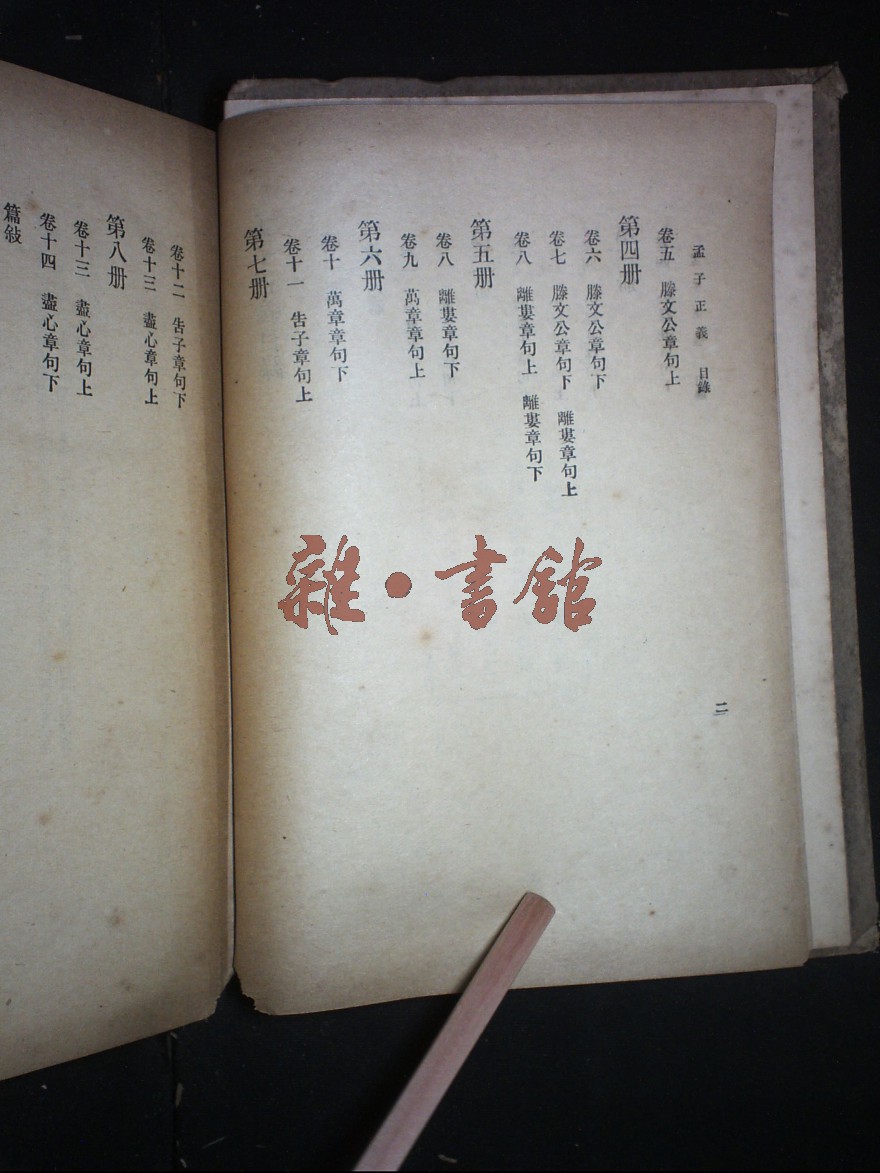 孟子正義 目錄
卷五 滕文公章句上
第四册
卷六 滕文公章句下
卷七 滕文公章句下 離婁章句上
卷八 離婁章句上 離婁章句下
第五册
卷八 離婁章句下
卷九 萬章章句上
第六册
卷十 萬章章句下
卷十一 告子章句上
第七册
二
卷十二 告子章句下
卷十三 盡心章句上
第八册
卷十三 盡心章句上
卷十四 盡心章句下
篇敍
雜·書館